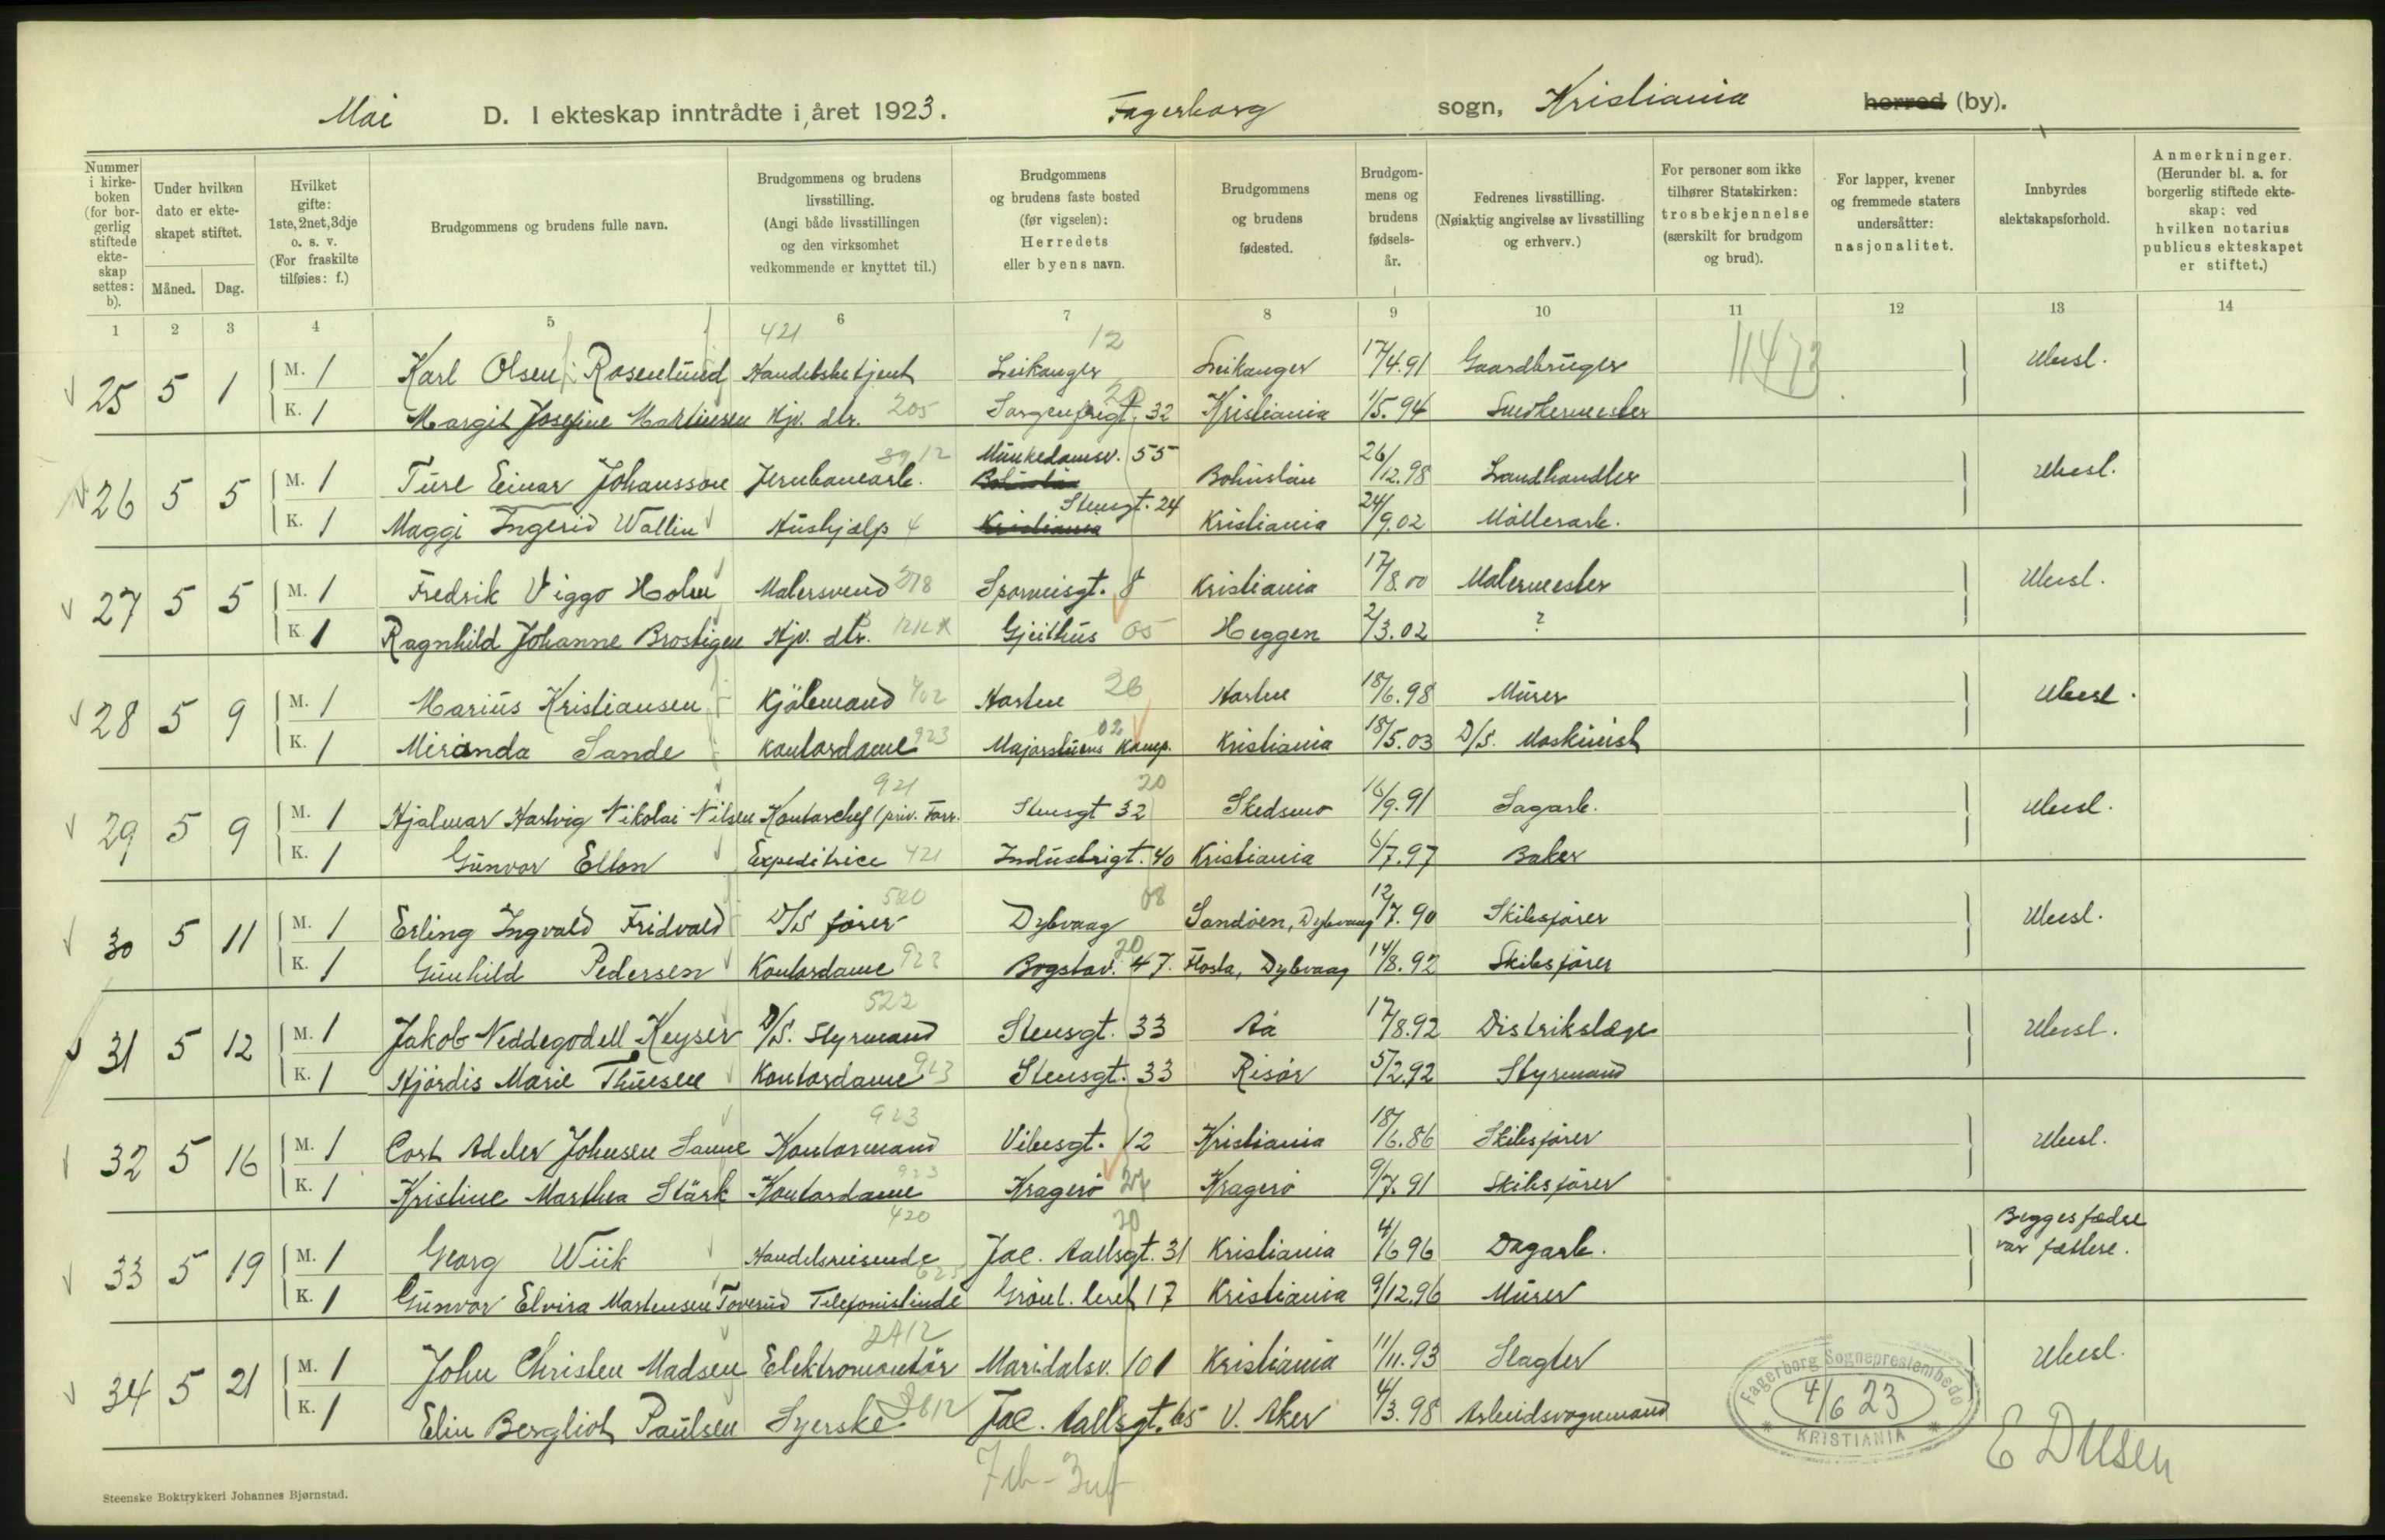 Mai D. I ekteskap inntrådte i året 1923. Fagerborg sogn, Kristiania herred (by).
Nummer i kirke-boken (for bor-gerlig stiftede ekte-skap settes: b).
Under hvilken dato er ekte-skapet stiftet.
Måned. Dag.
Hvilket gifte: 1ste, 2net, 3dje o. s. v. (For fraskilte tilføies: f.)
Brudgommens og brudens fulle navn.
Brudgommens og brudens livsstilling. (Angi både livsstillingen og den virksomhet vedkommende er knyttet til.)
Brudgommens og brudens faste bosted (før vigselen): Herredets eller byens navn.
Brudgommens og brudens fødested.
Brudgom-mens og brudens fødsels-år.
Fedrenes livsstilling. (Nøiaktig angivelse av livsstilling og erhverv.)
For personer som ikke tilhører Statskirken: trosbekjennelse (særskilt for brudgom og brud).
For lapper, kvener og fremmede staters undersåtter: nasjonalitet.
Innbyrdes slektskapsforhold.
Anmerkninger. (Herunder bl. a. for borgerlig stiftede ekte-skap: ved hvilken notarius publicus ekteskapet er stiftet.)
1 2 3 4 5 6 7 8 9 10 11 12 13 14
421 12 11473
25 5 1 M. 1 Karl Olsen Rosenlund Handelsbetjent Leikanger Leikanger 17/4.91 Gaardbruger Ubesl.
K. 1 Margit Josefine Martinsen Hjv. dtr. 205 Sorgenfrigt. 32 20 Kristiania 1/5.94 Snedkermester
26 5 5 M. 1 Ture Einar Johansson Jernbanearb. Munkedamsv. 55 Bohuslän Bohuslän 26/12.98 Landhandler Ubesl.
K. 1 Maggi Ingerid Wallin Hushjælp 4 Stensgt. 24 Kristiania Kristiania 24/9.02 Møllerarb.
27 5 5 M. 1 Fredrik Viggo Holm Malersvend 278 Sporveisgt. 8 Kristiania 17/8.00 Malermester Ubesl.
K. 1 Ragnhild Johanne Brostigen Hjv. dtr. Gjeithus 05 Heggen 2/3.02 ?
28 5 9 M. 1 Marius Kristiansen Kjølemand 702 Horten 26 Horten 18/6.98 Murer Ubesl.
K. 1 Miranda Sande Kontordame 923 Majorstuens Komp. 02 Kristiania 18/5.03 D/S. Maskinist
921 20
29 5 9 M. 1 Hjalmar Hartvig Nikolai Nilsen Kontorchef (priv. Forr. Stensgt 32 Skedsmo 16/9.91 Sagarb. Ubesl.
K. 1 Gunvor Elton Expeditrice 421 Industrigt. 40 Kristiania 6/7.97 Baker
520 08
30 5 11 M. 1 Erling Ingvald Fridvald D/S fører Dybvaag Sandøen, Dybvaag 12/7.90 Skibsfører Ubesl.
K. 1 Gunhild Pedersen Kontordame 923 Bogstav. 47. 20 Flosta, Dybvaag 14/8.92 Skibsfører
522
31 5 12 M. 1 Jakob Neddegodell Keyser D/S. Styrmand Stensgt. 33 Aa 17/8.92 Distrikslæge Ubesl.
K. 1 Hjørdis Marie Thuesen Kontordame 923 Stensgt. 33 Risør 5/2.92 Styrmand
923
32 5 16 M. 1 Cort Adeler Johnsen Sanne Kontormand Vibesgt. 12 Kristiania 18/6.86 Skibsfører Ubesl.
K. 1 Kristine Marthea Stärk Kontordame 923 Kragerø Kragerø 9/7.91 Skibsfører
420 20
33 5 19 M. 1 Georg Wiik Handelsreisende Jac. Aallsgt. 31 Kristiania 4/6 96 Dagarb. Begges fædre var fættere.
K. 1 Gunvor Elvira Martensen Toverud Telefonistinde Grønl. leret 17 Kristiania 9/12.96 Murer
2412
34 5 21 M. 1 John Christen Madsen Elektromontør Maridalsv. 101 Kristiania 11/11.93 Slagter Ubesl.
K. 1 Elin Bergliot Paulsen Syerske Jac. Aallsgt. 65 V. Aker 4/3.98 Arbeidsvognmand
Fagerborg Sogneprestembede 4/6 23 KRISTIANIA
Steenske Boktrykkeri Johannes Bjørnstad.